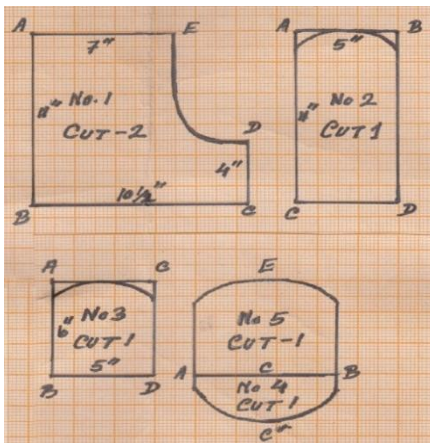 A E
7"
11" No. 1
CUT-2
D
4"
10 1/2"
B C
A B
5"
No 2
11" CUT 1
C D
A C
No 3
6" CUT 1
5"
B D
E
No 5
CUT-1
A C B
No 4
CUT 1
C"